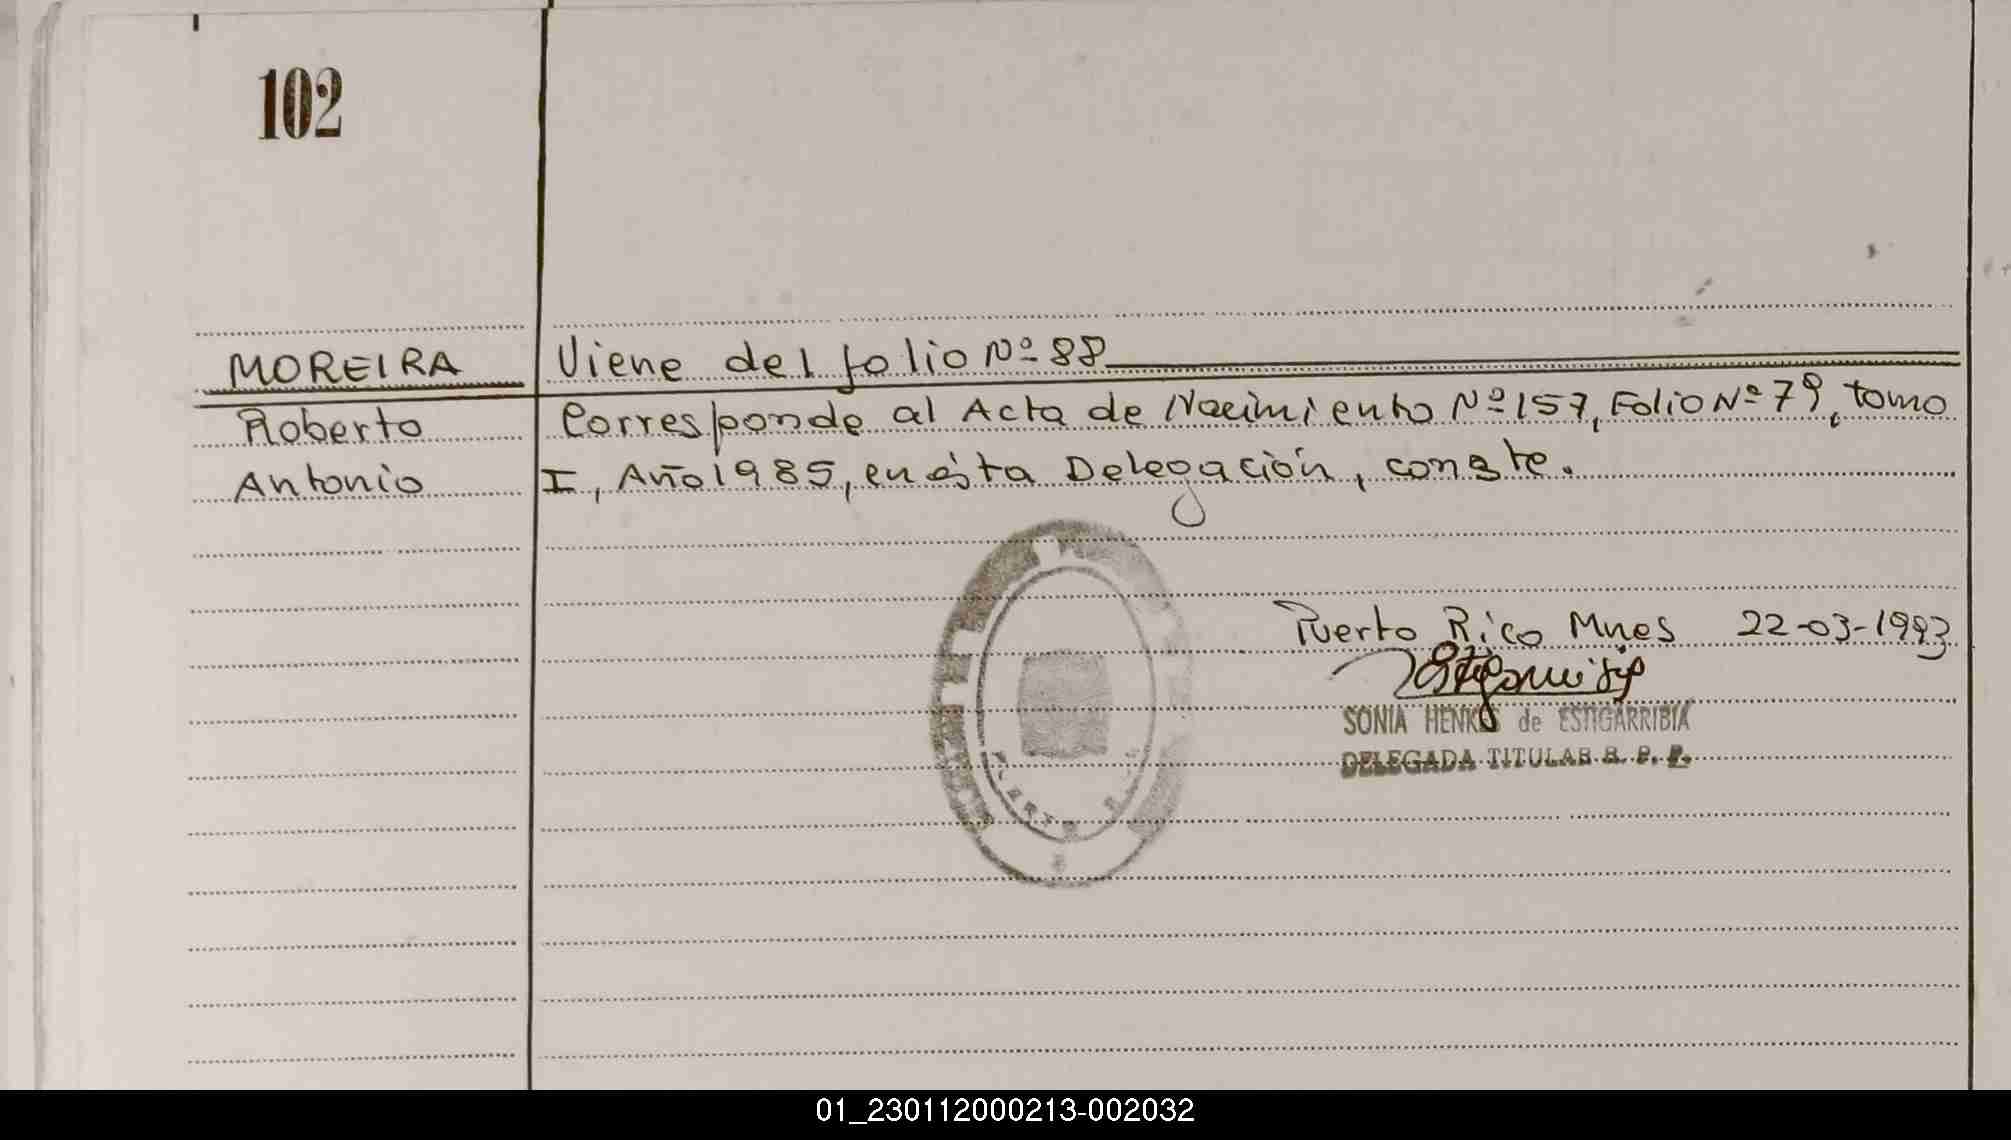 102
MOREIRA
Viene del folio Nº 88
Roberto
Corresponde al Acta de Nacimiento Nº 157, Folio Nº 79, tomo
Antonio
I, Año 1985, en ésta Delegación, conste.
Puerto Rico Mnes 22-03-1993
SONIA HENKE de ESTIGARRIBIA
DELEGADA TITULAR R. P. P.
01_230112000213-002032